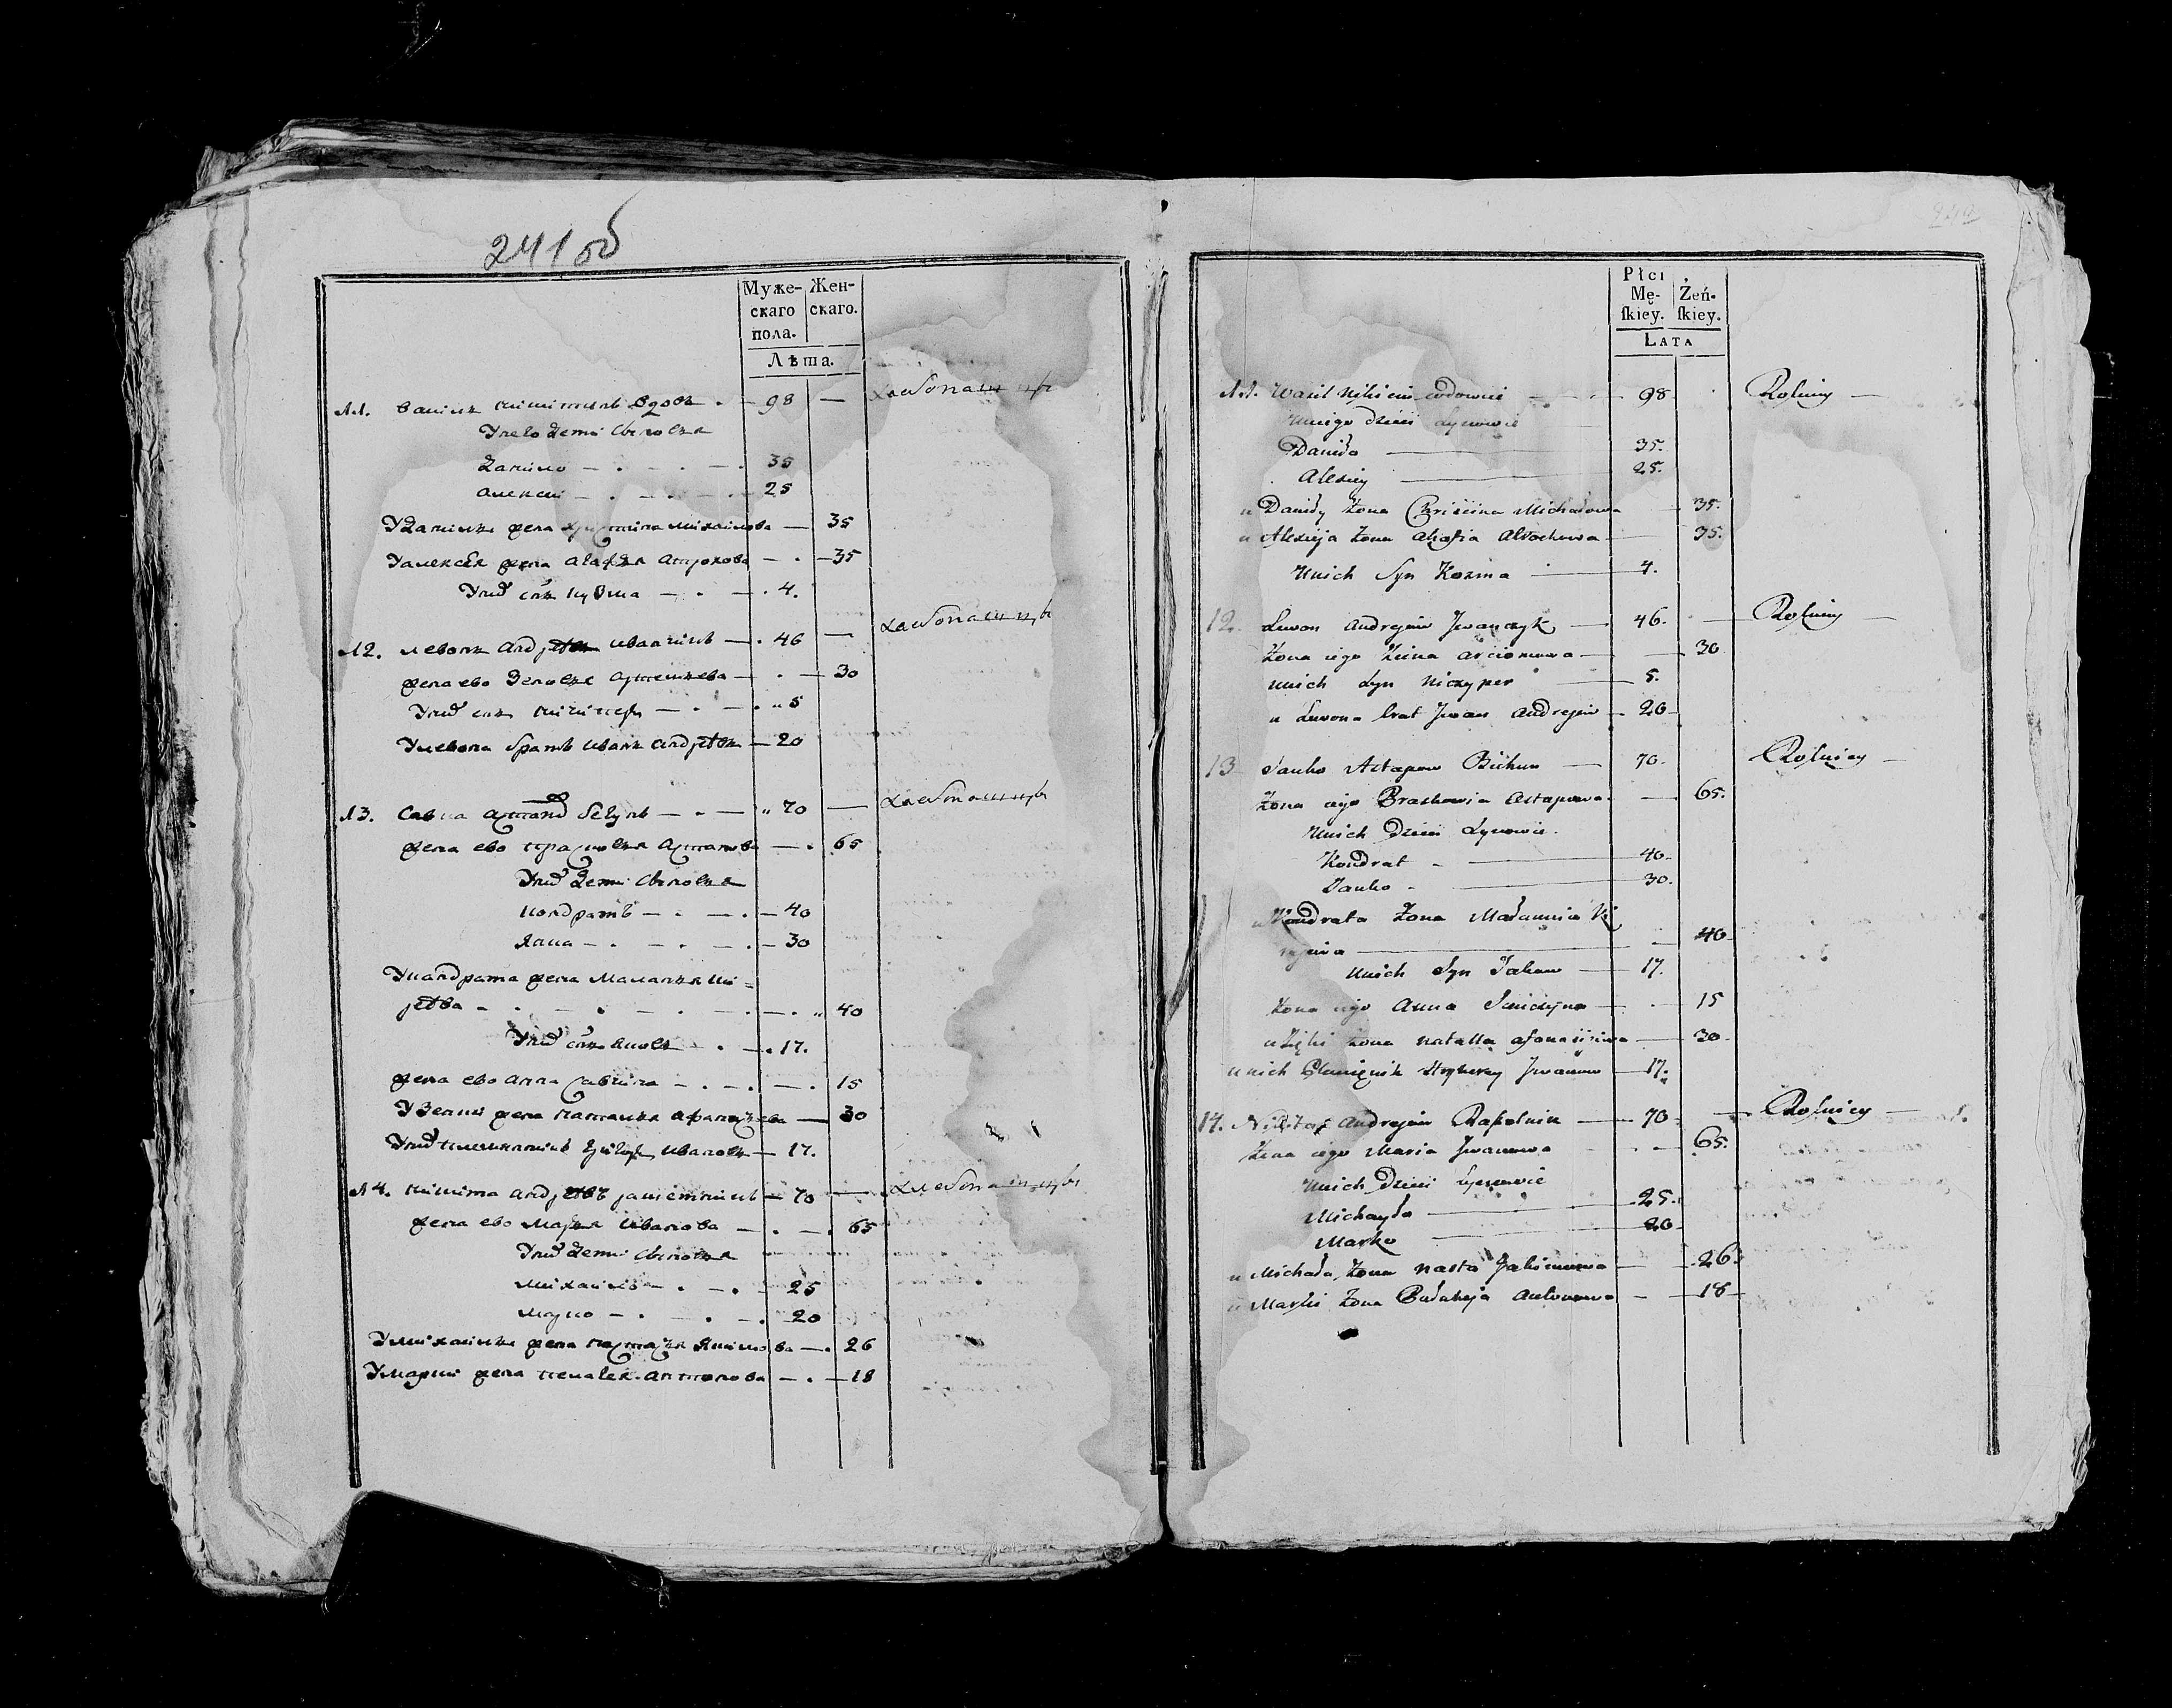 241 об
Муже- Жен-
скаго скаго.
пола.
Лѣта.
11. Василь Никитинъ вдовъ — 98 — хлебопашцы
У него дети сыновья
Данило — 35
Алексеи — 25
У Данилы жена Христина Михаилова — 35
У Алексея жена Агафья — 35
У них сынъ Кузма — 4.
12. Левонъ Андреевъ Иванчикъ — 46 — хлебопашцы
жена ево Зеновья Артемьева — 30
У них сынъ Ничипер — 5
У Левона братъ Иванъ Андреевъ — 20
13. Савка Астапов — 70 — хлебопашцы
жена ево Прасковья Астапова — 65
У них дети сыновья
Кондратъ — 40
Янка — 30
У Кандрата жена Маланья Ки=
реева — 40
У них сынъ Яковъ — 17.
жена ево Анна Савкина — 15
У Зенки жена Наталья Афанасьева — 30
У них племянникъ Григорь Ивановъ — 17.
14. Никита Андреевъ — 70 — хлебопашцы
жена ево Марья Иванова — 65
У них дети сыновья
Михаило — 25
Марко — 20
У Михаилы жена Настасья Якимова — 26
У Марки жена Пелагея Антонова — 18
Płci
Mę- Żeń-
ſkiey. ſkiey.
Lata
11. Wasil Nikicin wdowiec — 98 Rolnicy —
u niego dzieci synowie
Daniło — 35.
Alexiey — 25.
u Daniły żona Chriścina Michałowa — 35.
u Alexieja żona Ahafia — 35.
u nich syn Kozma — 4.
12. Lewon Andrejew Iwanczyk — 46. — Rolnicy —
żona iego Zina Arciomowa — 30
u nich syn Niczyper — 5.
u Lewona brat Iwan Andrejew — 20
13 Sauko Astapow — 70. Rolnicy —
żona iego Praskowia Astapowa — 65.
u nich dzieci synowie.
Kondrat — 40.
Janko — 30.
u Kondrata żona Małannia Ki
rejewa — 40
u nich syn Jakow — 17.
żona iego Anna Sauczyna — 15
żona Natalla Afonasiewa — 30
u nich Plemięnik Hryhorey Iwanow — 17.
14. Nikita Andrejew — 70 — Rolnicy —
żena iego Maria Iwanowa — 65.
u nich dzieci synowie
Michayło — 25.
Marko — 20
u Michała żona Nasta Jakimowa — 26.
u Marki żona Pałaheja Antonowa — 18